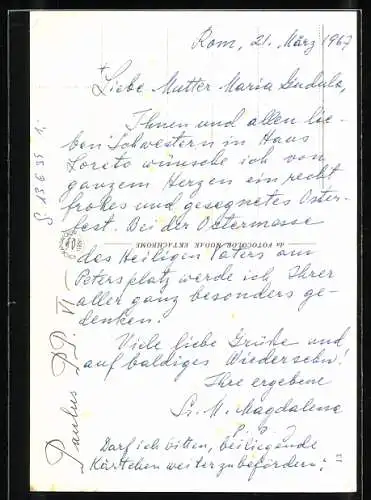 Rom, 21. März 1967
+
Liebe Mutter Maria Gudula,
Ihnen und allen lie-
ben Schwestern in Haus
Loreto wünsche ich von
ganzem Herzen ein recht
frohes und gesegnetes Oster-
fest. Bei der Ostermesse
des Heiligen Vaters am
Petersplatz werde ich Ihrer
aller ganz besonders ge-
denken!
Viele liebe Grüße und
auf baldiges Wiedersehn!
Ihre ergebene
Sr. M. Magdalena
Darf ich bitten, beiliegende
Kärtchen weiterzubefördern!
Paulus PP. VI
da FOTOCOLOR KODAK EKTACHROME